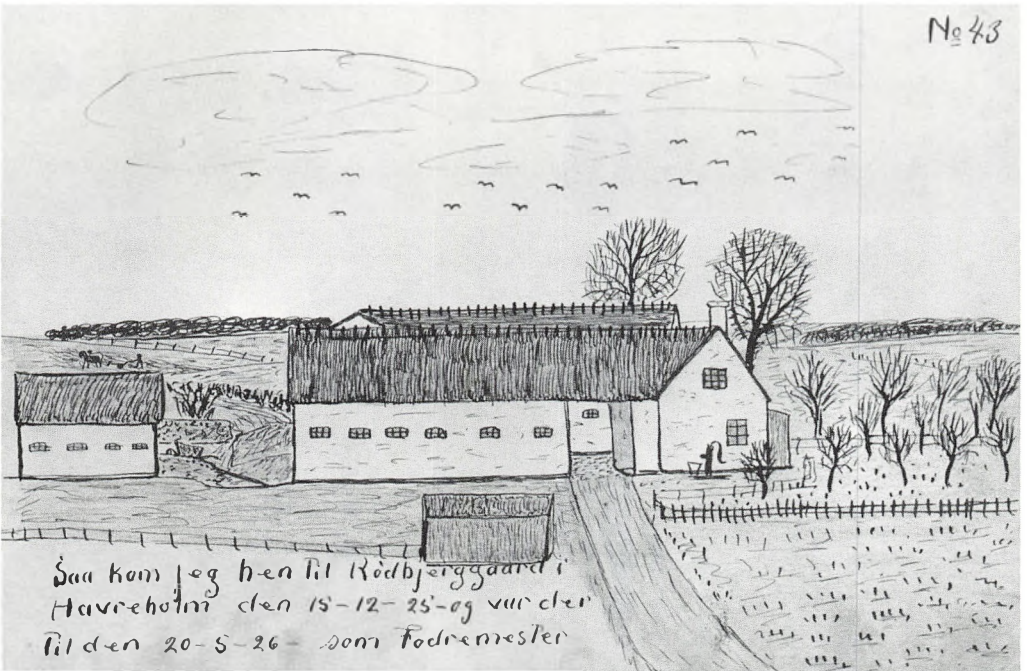 No 43
Saa kom jeg hen Til Rödbjerggaard i
Havreholm den 15-12-25-og var der
Til den 20-5-26- som Fodremester